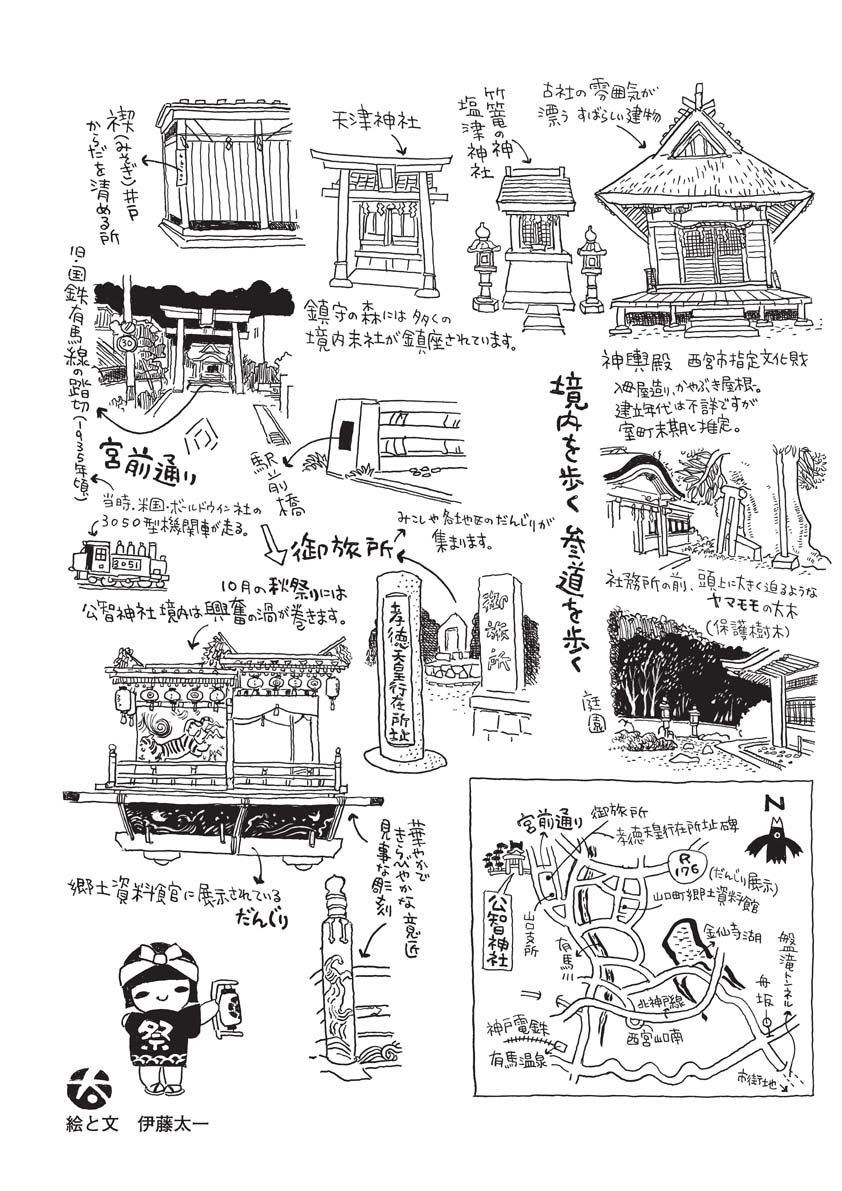 古社の雰囲気が
漂う すばらしい建物
竹篭の神
塩津神社
天津神社
禊(みそぎ)井戸
からだを清める所
鎮守の森には多くの
境内末社が鎮座されています。
神輿殿 西宮市指定文化財
入母屋造り、かやぶき屋根。
建立年代は不詳ですが
室町末期と推定。
境内を歩く 参道を歩く
旧・国鉄有馬線の踏切(1935年頃)
宮前通り
駅前橋
当時、米国・ボールドウィン社の
3050型機関車が走る。
3051
御旅所
みこしや各地区のだんじりが
集まります。
10月の秋祭りには
公智神社境内は興奮の渦が巻きます。
孝徳天皇行在所址
御旅所
社務所の前、頭上に大きく迫るような
ヤマモモの大木
(保護樹木)
庭園
華やかで
きらびやかな意匠
見事な彫刻
郷土資料館に展示されている
だんじり
祭
N
御旅所
宮前通り
孝徳天皇行在所址碑
R
176
(だんじり展示)
山口町郷土資料館
公智神社
山口支所
有馬川
金仙寺湖
盤滝トンネル
舟坂
北神戸線
西宮山口南
神戸電鉄
有馬温泉
市街地
絵と文 伊藤太一